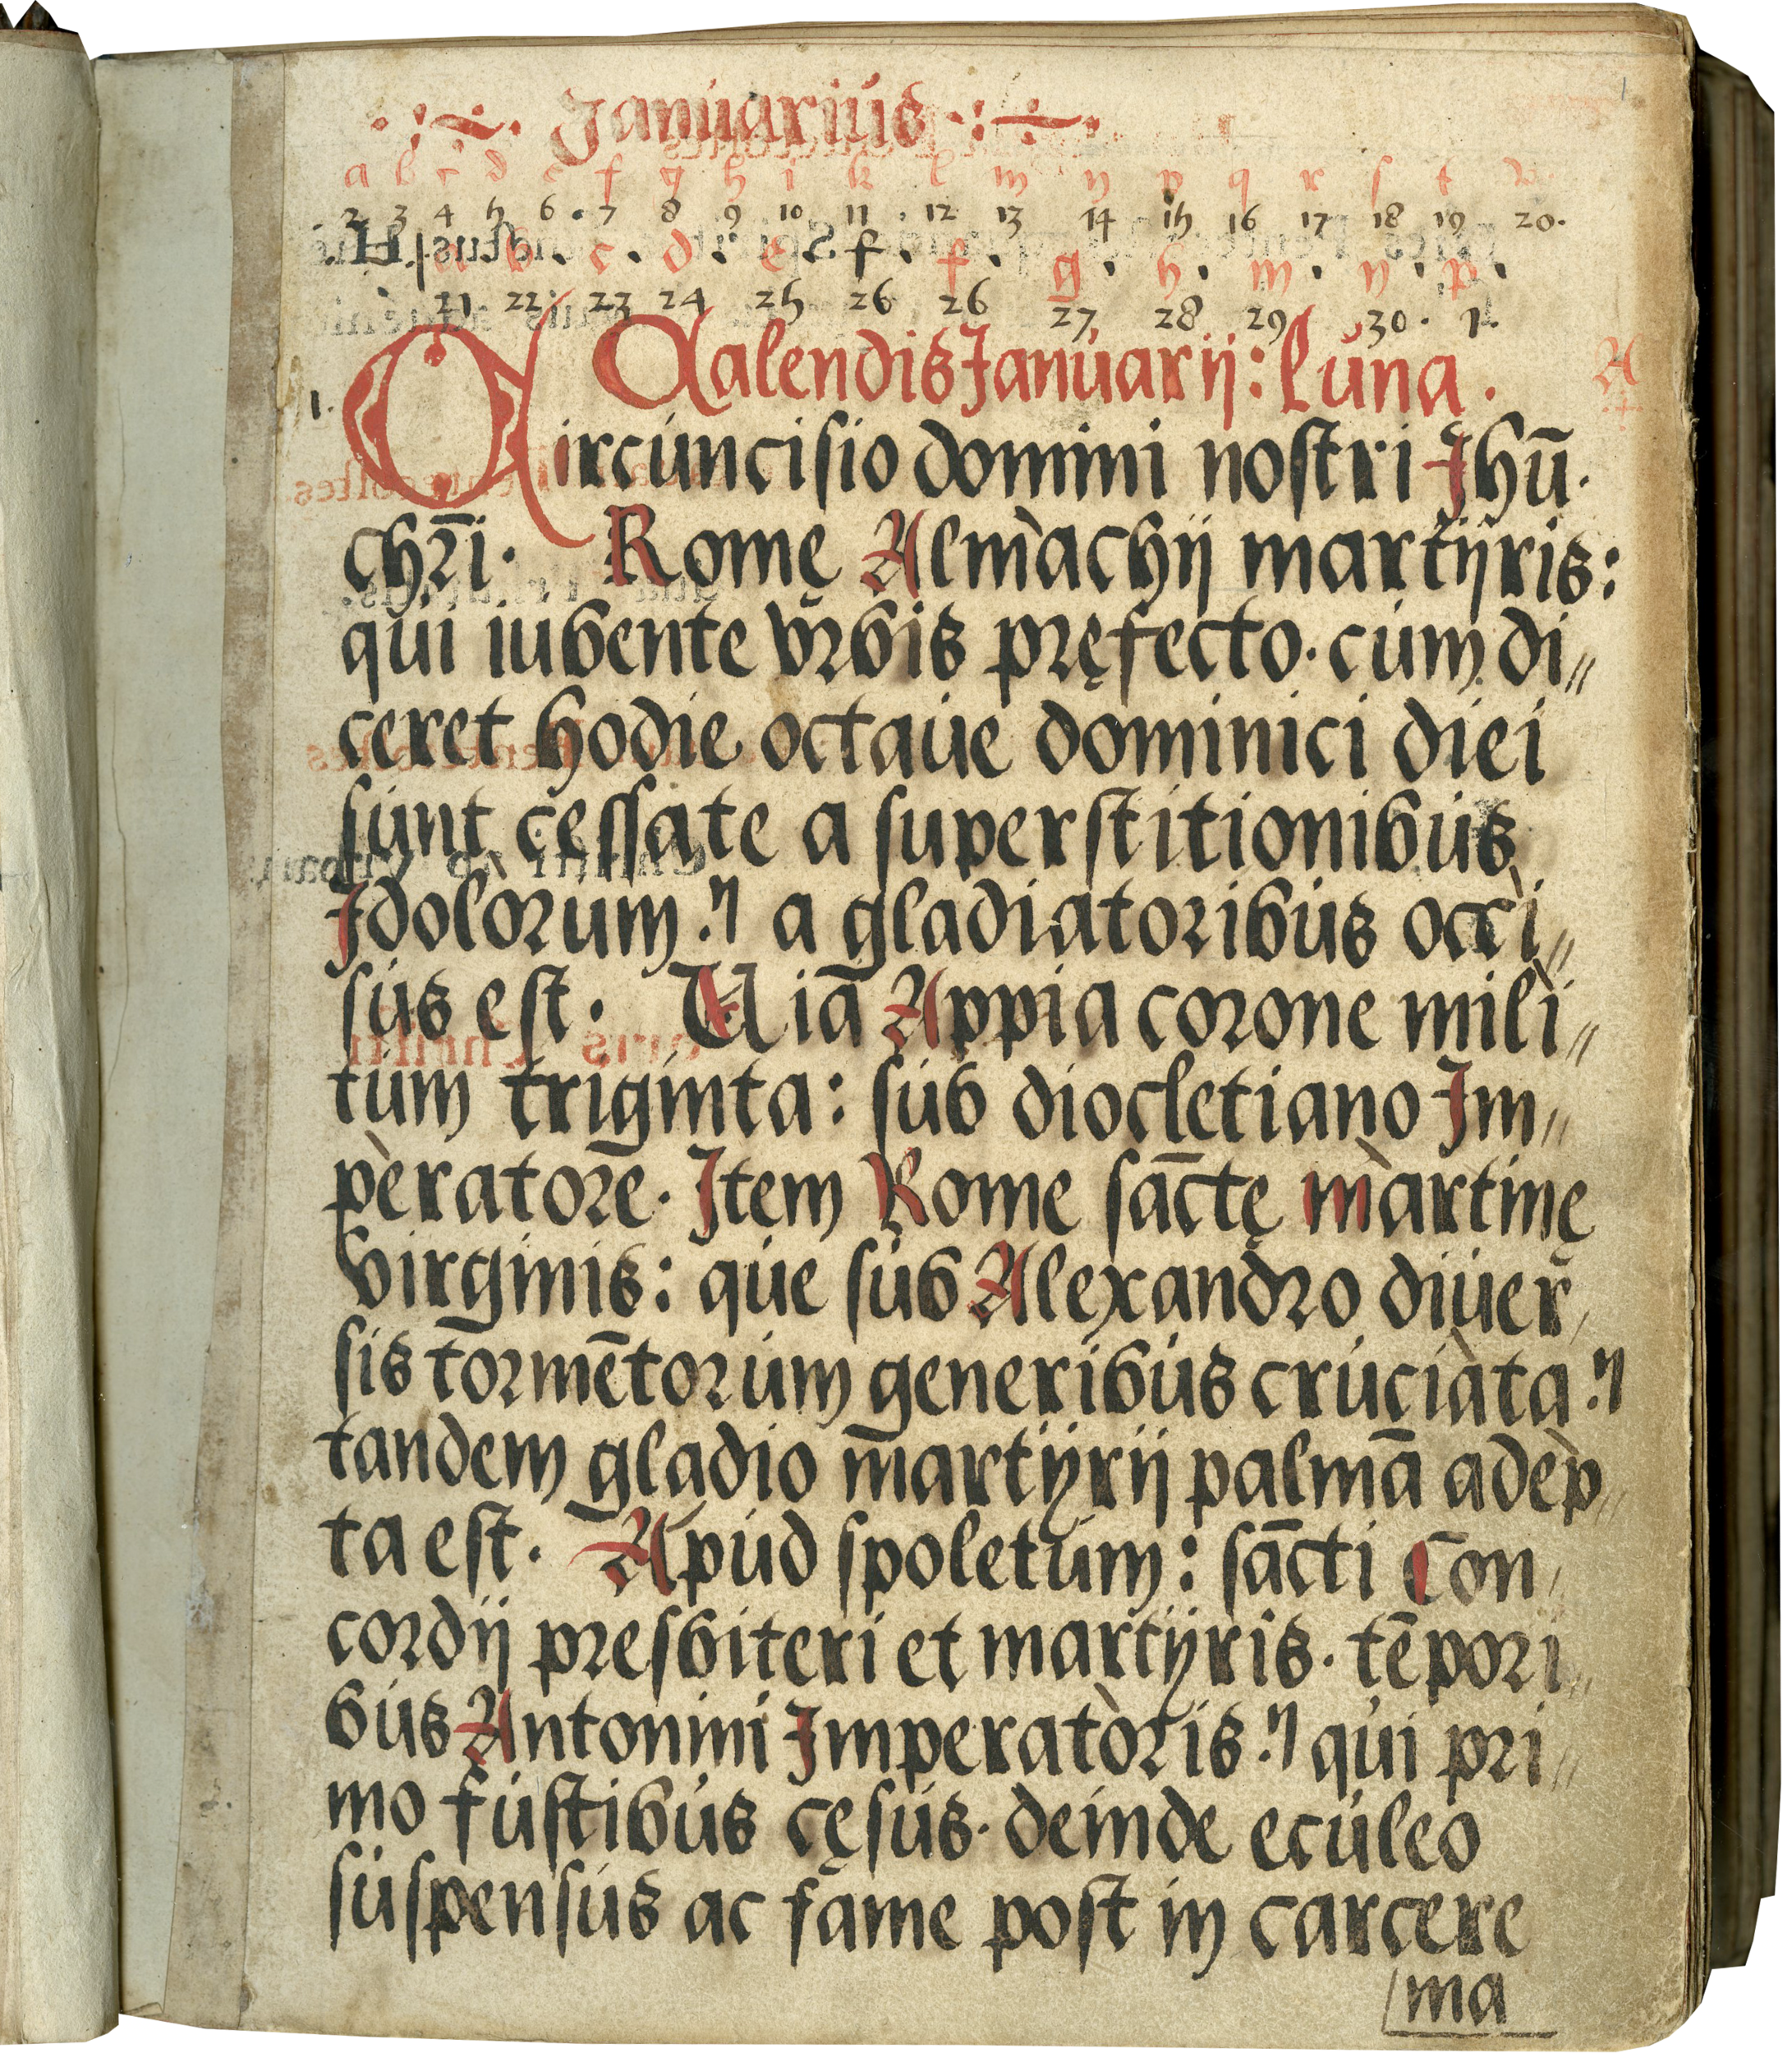 Januarius
a b c d e f g h i k l m n p q r s t v
2 3 4 5 6 . 7 8 9 10 11 . 12 13 14 15 16 17 18 19 20.
a . b . c . d . e . f . f . g . h . m . n . p .
21 22 23 24 25 26 26 27 28 29 30. 1.
Calendis Januarij: luna.
1. Circuncisio domini nostri Jhū.
chr̄i. Romę Almachij martijris:
qui iubente vrbis pręfecto. cum di〃
ceret hodie octaue dominici diei
sunt cessate a superstitionibus
Jdolorum. a gladiatoribus occi〃
sus est. Uiā Appia corone mili〃
tum triginta: sub diocletiano Jm〃
peratorē. Jtem Rome sāctę martinę
virginis: que sub Alexandro diuer
sis tormētorum generibus cruciata.
tandem gladio martijrij palmā adep〃
ta est. Apud spoletum: sācti Con
cordij presbiteri et martijris. tēpori〃
bus Antonini Jmperatoris. qui pri〃
mo fustibus cęsus. deinde eculeo
suspensus ac fame post in carcere
ma